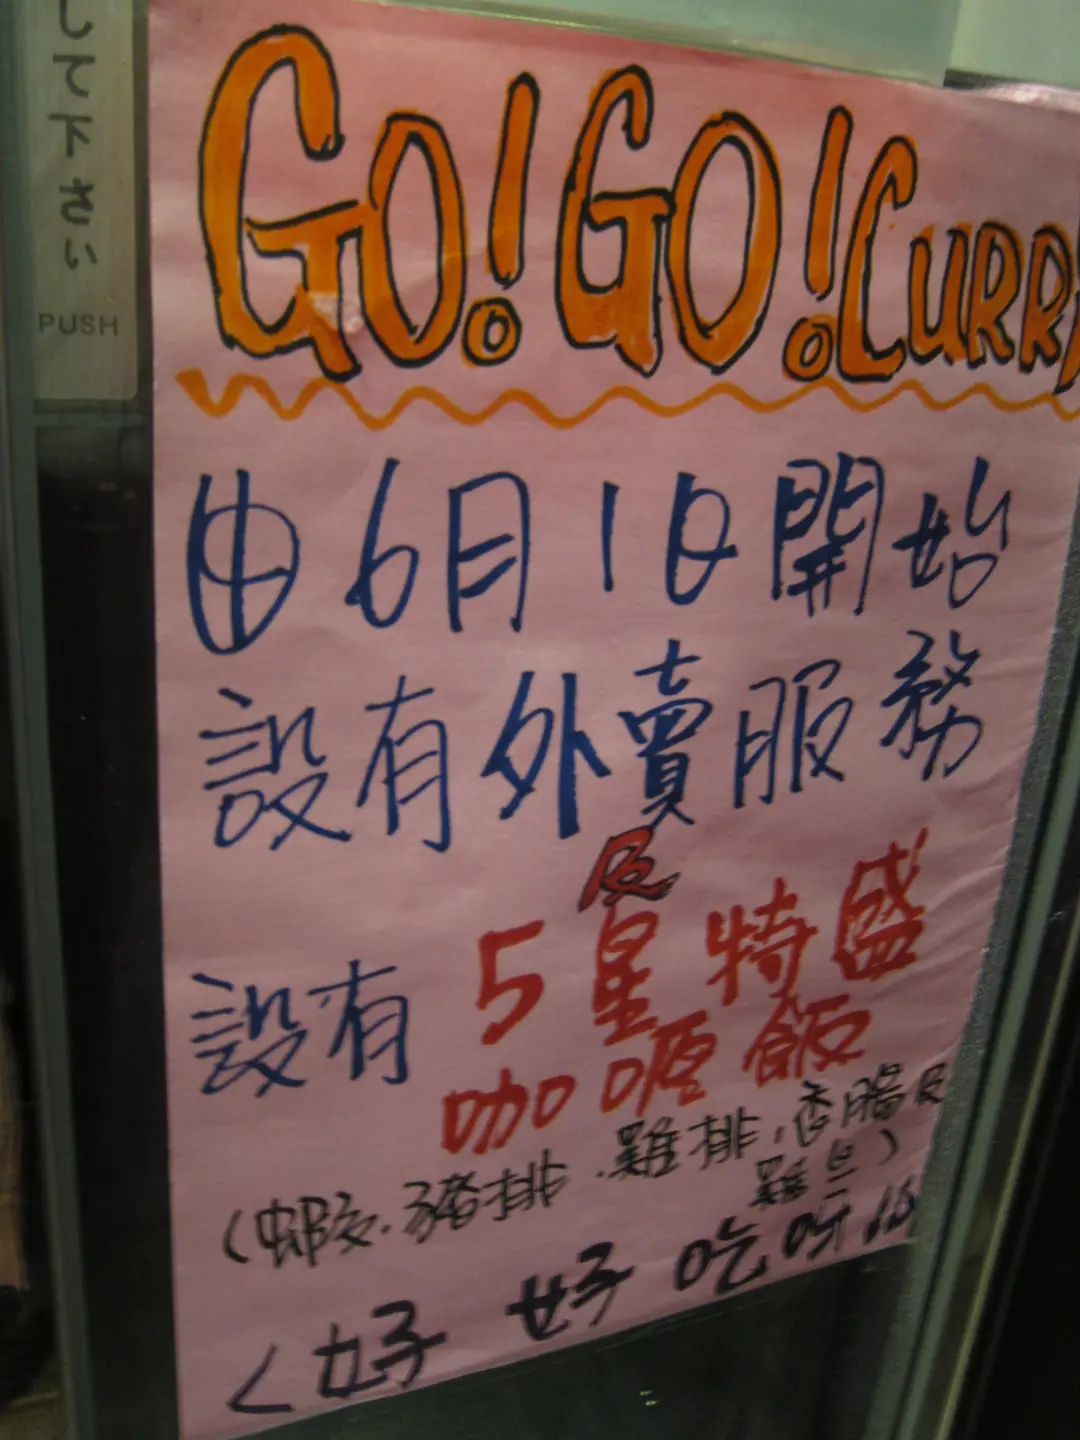 して下さい
PUSH
GO!GO!CURRY
由6月1日開始
設有外賣服務
及
設有5星特盛
咖喱飯
(蝦.豬排.雞排,香腸及
雞旦)
(好好吃呀